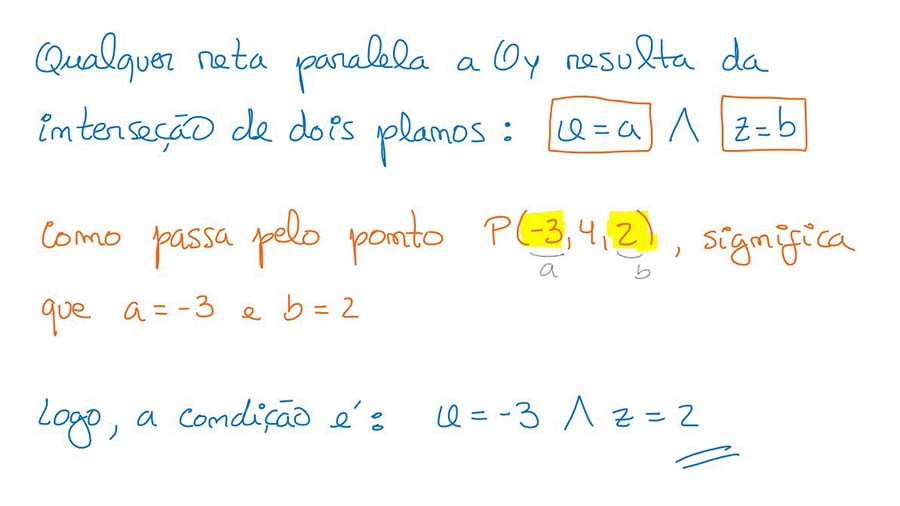 Qualquer reta paralela a Oy resulta da
interseção de dois planos: x=a ∧ z=b
Como passa pelo ponto P(-3,4,2), significa
a b
que a=-3 e b=2
Logo, a condição é: x=-3 ∧ z=2